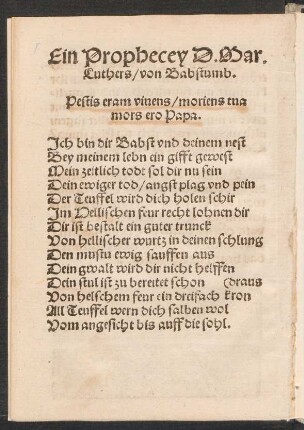 Ein Prophecey D. Mar.
Luthers/von Babstumb.
Pestis eram vivens/moriens tua
mors ero Papa.
Ich bin dir Babst vnd deinem nest
Bey meinem lebn ein gifft gewest
Mein zeitlich todt sol dir nu sein
Dein ewiger tod/angst plag vnd pein
Der Teuffel wird dich holen schir
Im Hellischen feur recht lohnen dir
Dir ist bestalt ein guter trunck
Von hellischer wurtz in deinen schlung
Den mustu ewig sauffen aus
Dein gwalt wird dir nicht helffen
Dein stul ist zu bereitet schon (draus
Von helschem feur ein dreifach kron
All Teuffel wern dich salben wol
Vom angesicht bis auff die sohl.